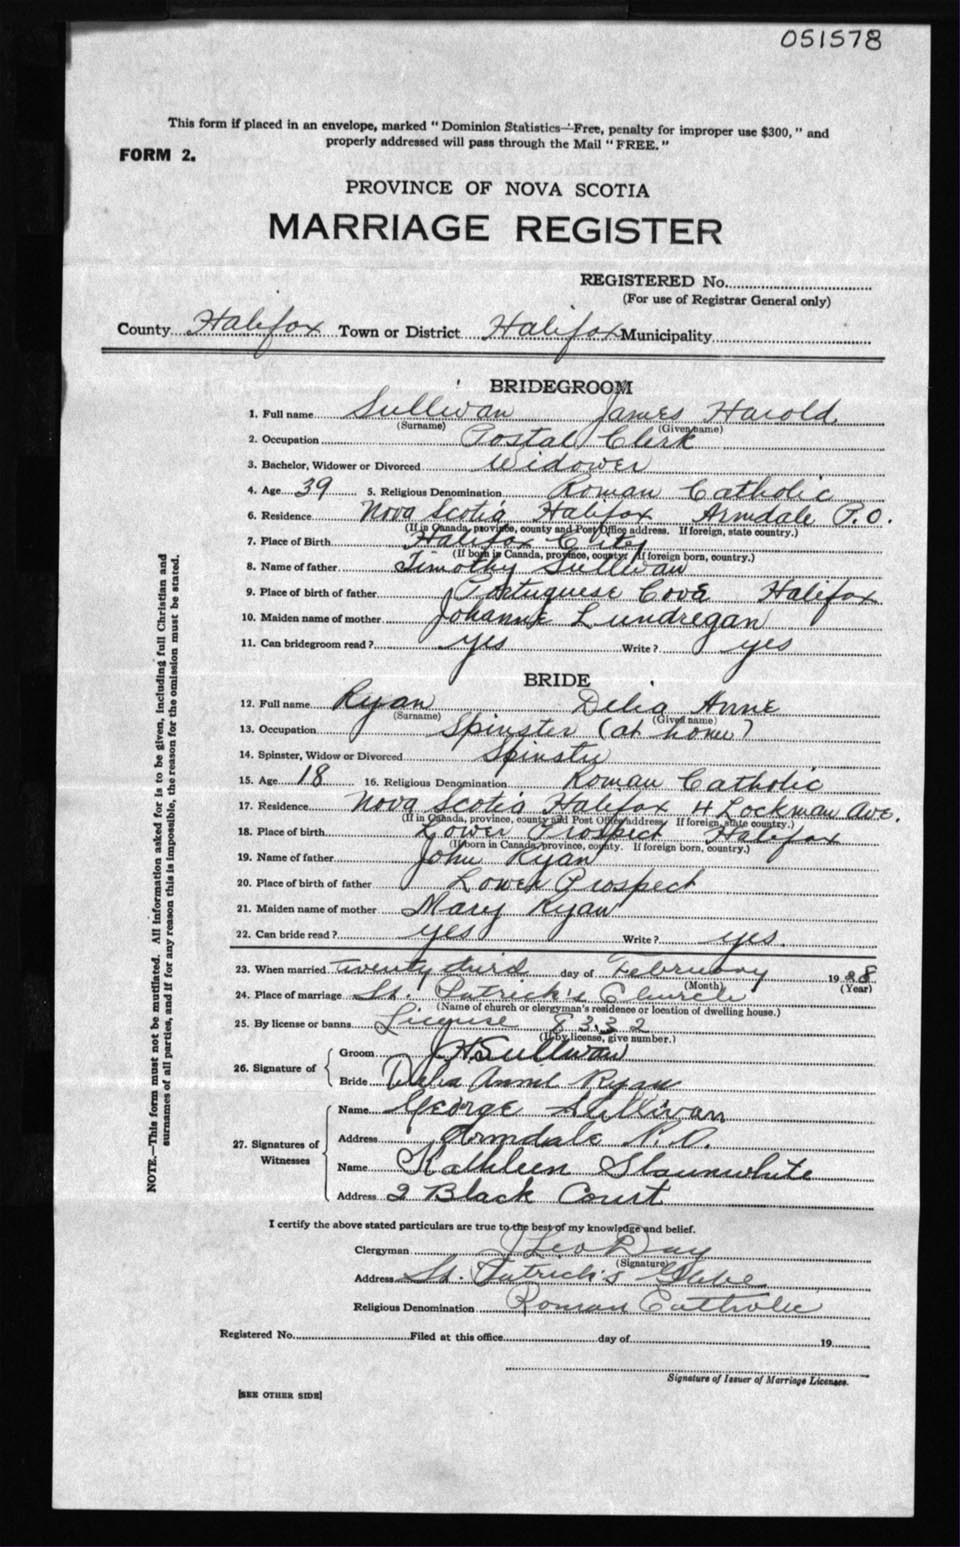 051578
This form if placed in an envelope, marked "Dominion Statistics—Free, penalty for improper use $300," and
properly addressed will pass through the Mail "FREE."
FORM 2.
PROVINCE OF NOVA SCOTIA
MARRIAGE REGISTER
REGISTERED No.
(For use of Registrar General only)
County Halifax Town or District Halifax Municipality
BRIDEGROOM
1. Full name Sullivan James Harold
(Surname) (Given name)
2. Occupation Postal Clerk
3. Bachelor, Widower or Divorced Widower
4. Age 39 5. Religious Denomination Roman Catholic
6. Residence Nova Scotia Halifax Armdale P.O.
(If in Canada, province, county and Post Office address. If foreign, state country.)
7. Place of Birth Halifax City
(If born in Canada, province, county. If foreign born, country.)
8. Name of father Timothy Sullivan
9. Place of birth of father Portuguese Cove Halifax
10. Maiden name of mother Johanne Lundregan
11. Can bridegroom read? yes Write? yes
BRIDE
12. Full name Ryan Delia Anne
(Surname) (Given name)
13. Occupation Spinster (at home)
14. Spinster, Widow or Divorced Spinster
15. Age 18 16. Religious Denomination Roman Catholic
17. Residence Nova Scotia Halifax 4 Lockman Ave.
(If in Canada, province, county and Post Office address. If foreign, state country.)
18. Place of birth Lower Prospect Halifax
(If born in Canada, province, county. If foreign born, country.)
19. Name of father John Ryan
20. Place of birth of father Lower Prospect
21. Maiden name of mother Mary Ryan
22. Can bride read? yes Write? yes.
23. When married twenty third day of February 1928
(Month) (Year)
24. Place of marriage St. Patrick's Church
(Name of church or clergyman's residence or location of dwelling house.)
25. By license or banns License 8332
(If by license, give number.)
26. Signature of
Groom J H Sullivan
Bride Delia Anne Ryan
27. Signatures of Witnesses
Name George Sullivan
Address Armdale P.O.
Name Kathleen Slaunwhite
Address 2 Black Court
I certify the above stated particulars are true to the best of my knowledge and belief.
Clergyman J Leo Day
(Signature)
Address St. Patrick's Glebe
Religious Denomination Roman Catholic
Registered No. Filed at this office day of 19
Signature of Issuer of Marriage Licenses.
[SEE OTHER SIDE]
NOTE.—This form must not be mutilated. All information asked for is to be given, including full Christian and
surnames of all parties, and if for any reason this is impossible, the reason for the omission must be stated.